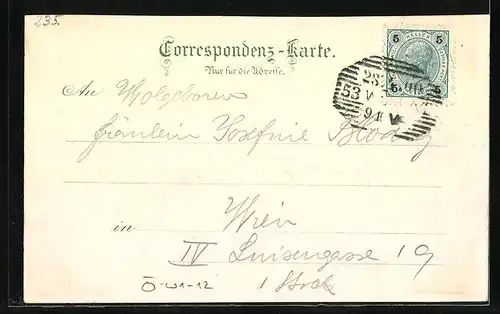 235.
Correspondenz-Karte.
Nur für die Adresse.
5 HELLER 5
5 5
An Wolgeboren
Fräulein Josefine
in Wien
IV Luisengasse 19
Ö-W1-12 1 Stock